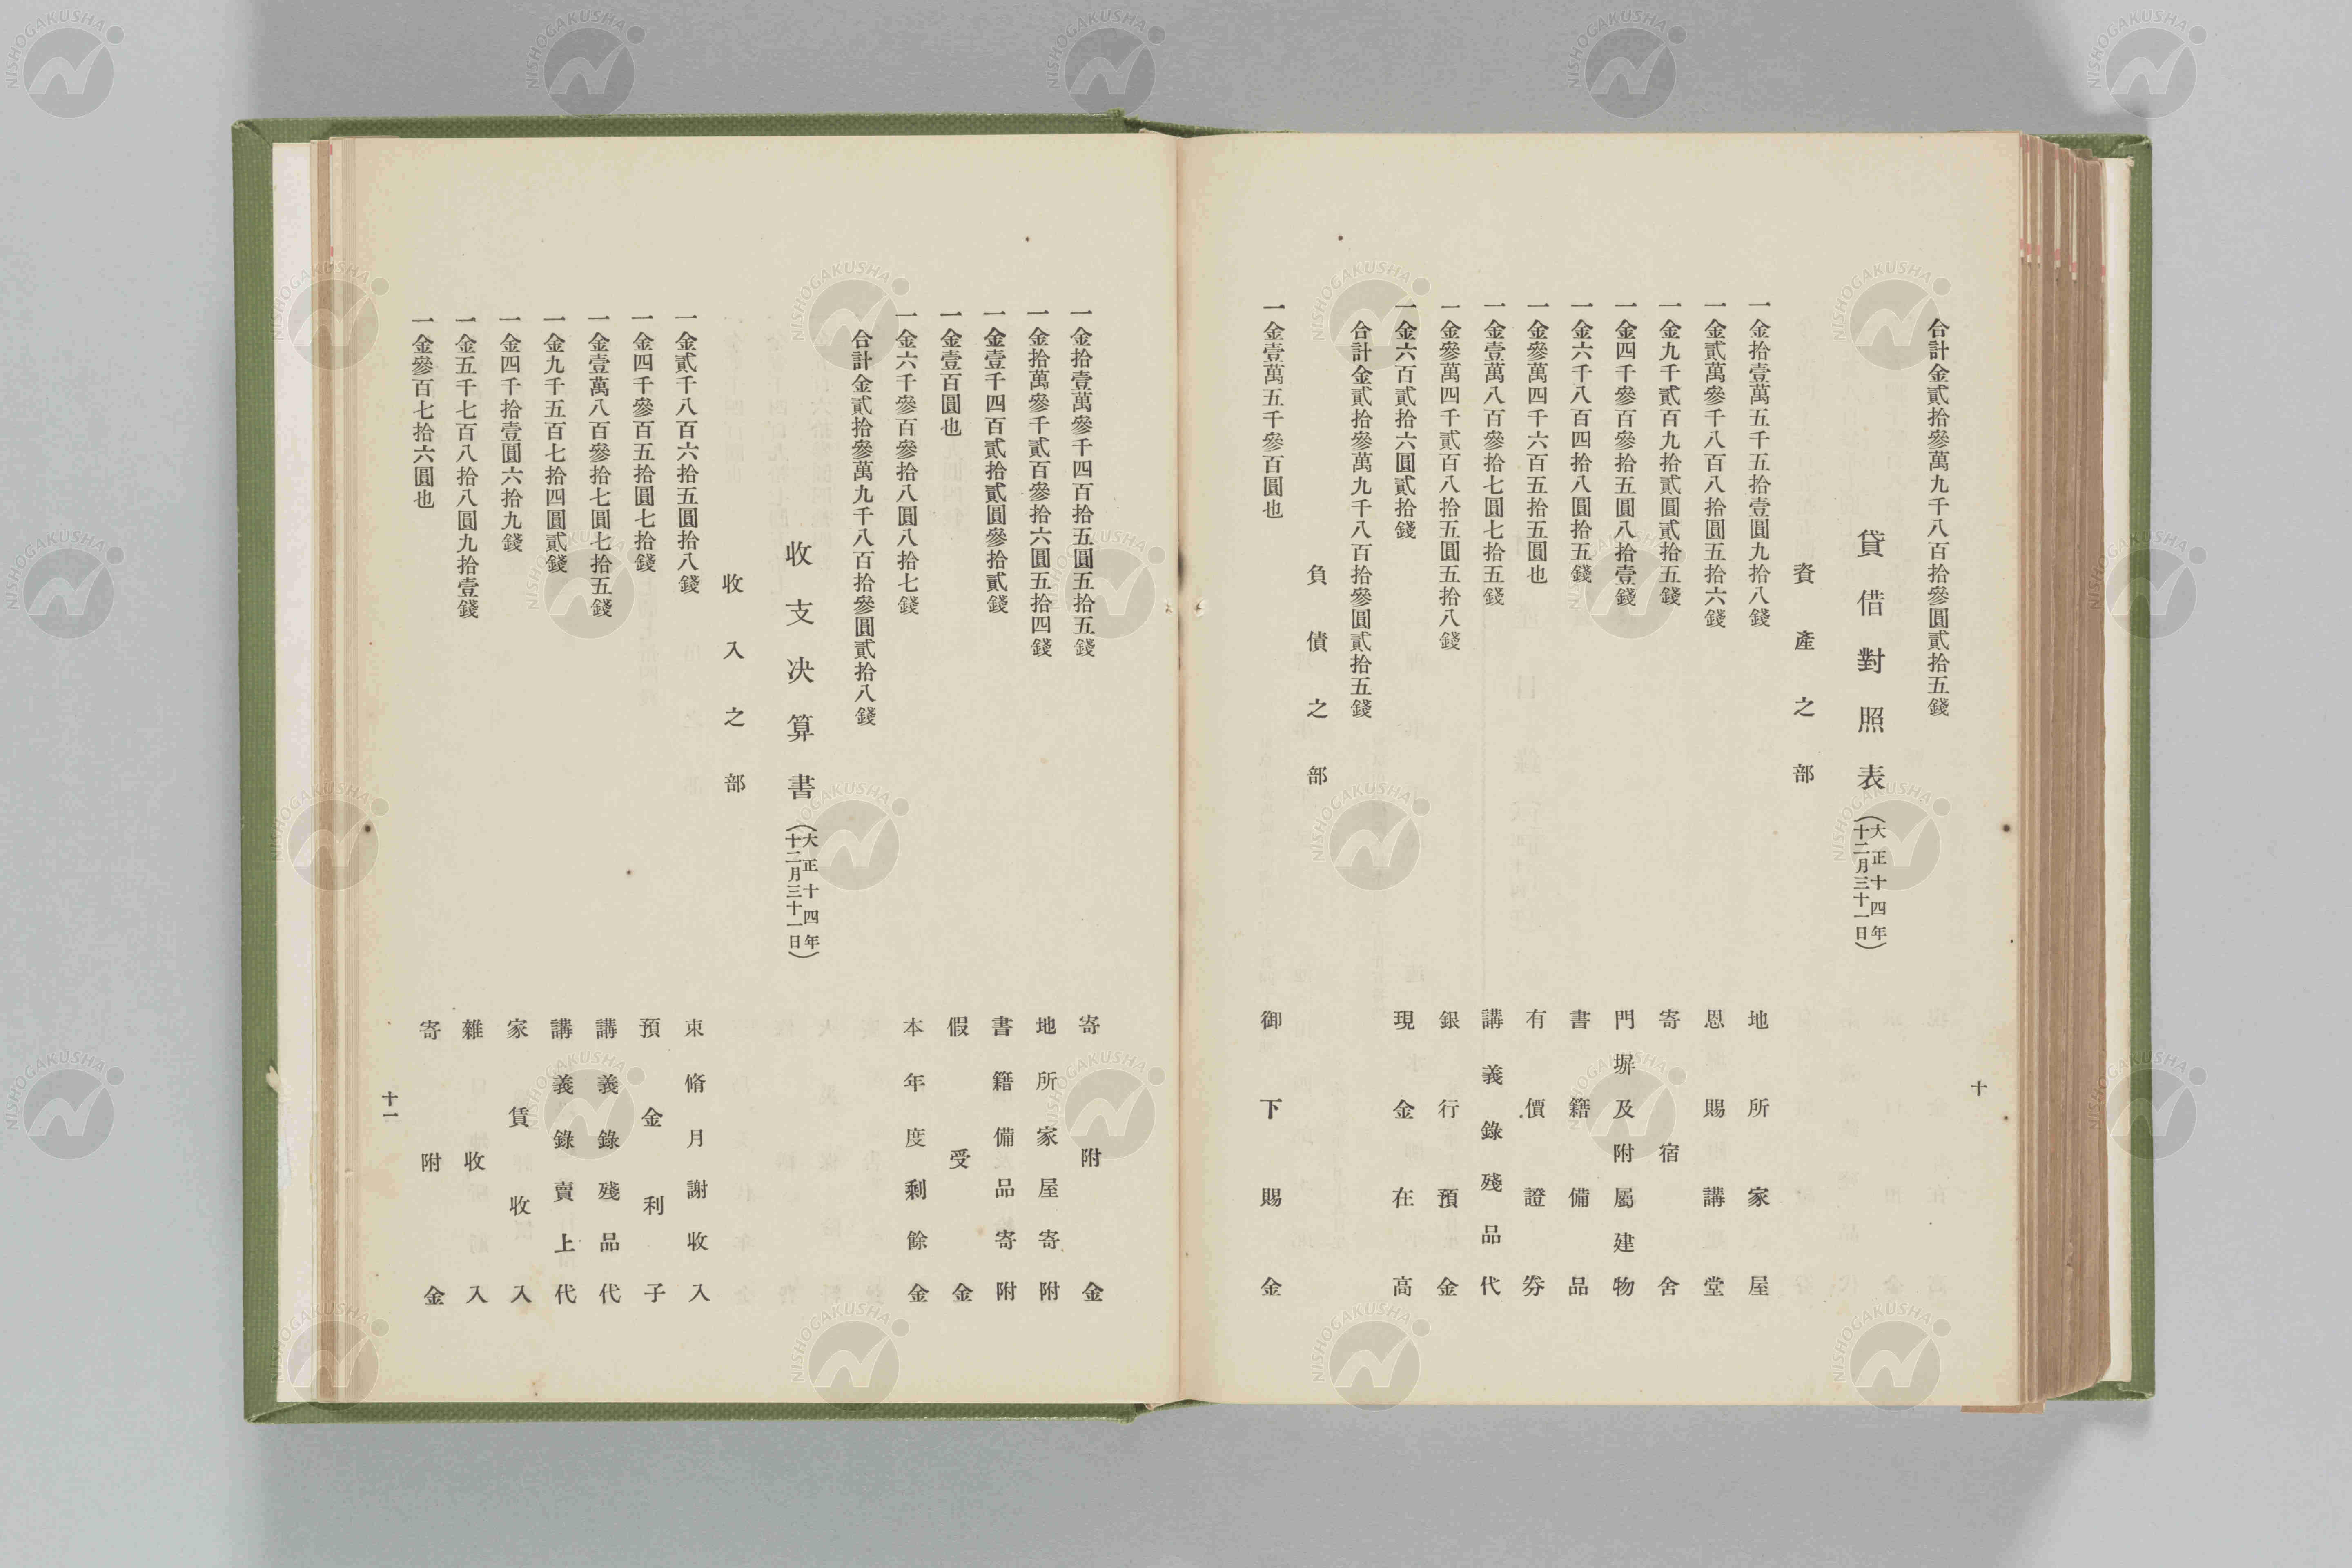 合計金貳拾參萬九千八百拾參圓貳拾五錢
貸借對照表（大正十四年十二月三十一日）
資產之部
一金拾壹萬五千五拾壹圓九拾八錢　地所家屋
一金貳萬參千八百八拾圓五拾六錢　恩賜講堂
一金九千貳百九拾貳圓貳拾五錢　寄宿舍
一金四千參百參拾五圓八拾壹錢　門塀及附屬建物
一金六千八百四拾八圓拾五錢　書籍備品
一金參萬四千六百五拾五圓也　有價證券
一金壹萬八百參拾七圓七拾五錢　講義錄殘品代
一金參萬四千貳百八拾五圓五拾八錢　銀行預金
一金六百貳拾六圓貳拾錢　現金在高
合計金貳拾參萬九千八百拾參圓貳拾五錢
負債之部
一金壹萬五千參百圓也　御下賜金
十
一金拾壹萬參千四百拾五圓五拾五錢　寄附金
一金拾萬參千貳百參拾六圓五拾四錢　地所家屋寄附
一金壹千四百貳拾貳圓參拾貳錢　書籍備品寄附
一金壹百圓也　假受金
一金六千參百參拾八圓八拾七錢　本年度剩餘金
合計金貳拾參萬九千八百拾參圓貳拾八錢
收支决算書（大正十四年十二月三十一日）
收入之部
一金貳千八百六拾五圓拾八錢　束脩月謝收入
一金四千參百五拾圓七拾錢　預金利子
一金壹萬八百參拾七圓七拾五錢　講義錄殘品代
一金九千五百七拾四圓貳錢　講義錄賣上代
一金四千拾壹圓六拾九錢　家賃收入
一金五千七百八拾八圓九拾壹錢　雜收入
一金參百七拾六圓也　寄附金
十一
NISHOGAKUSHA